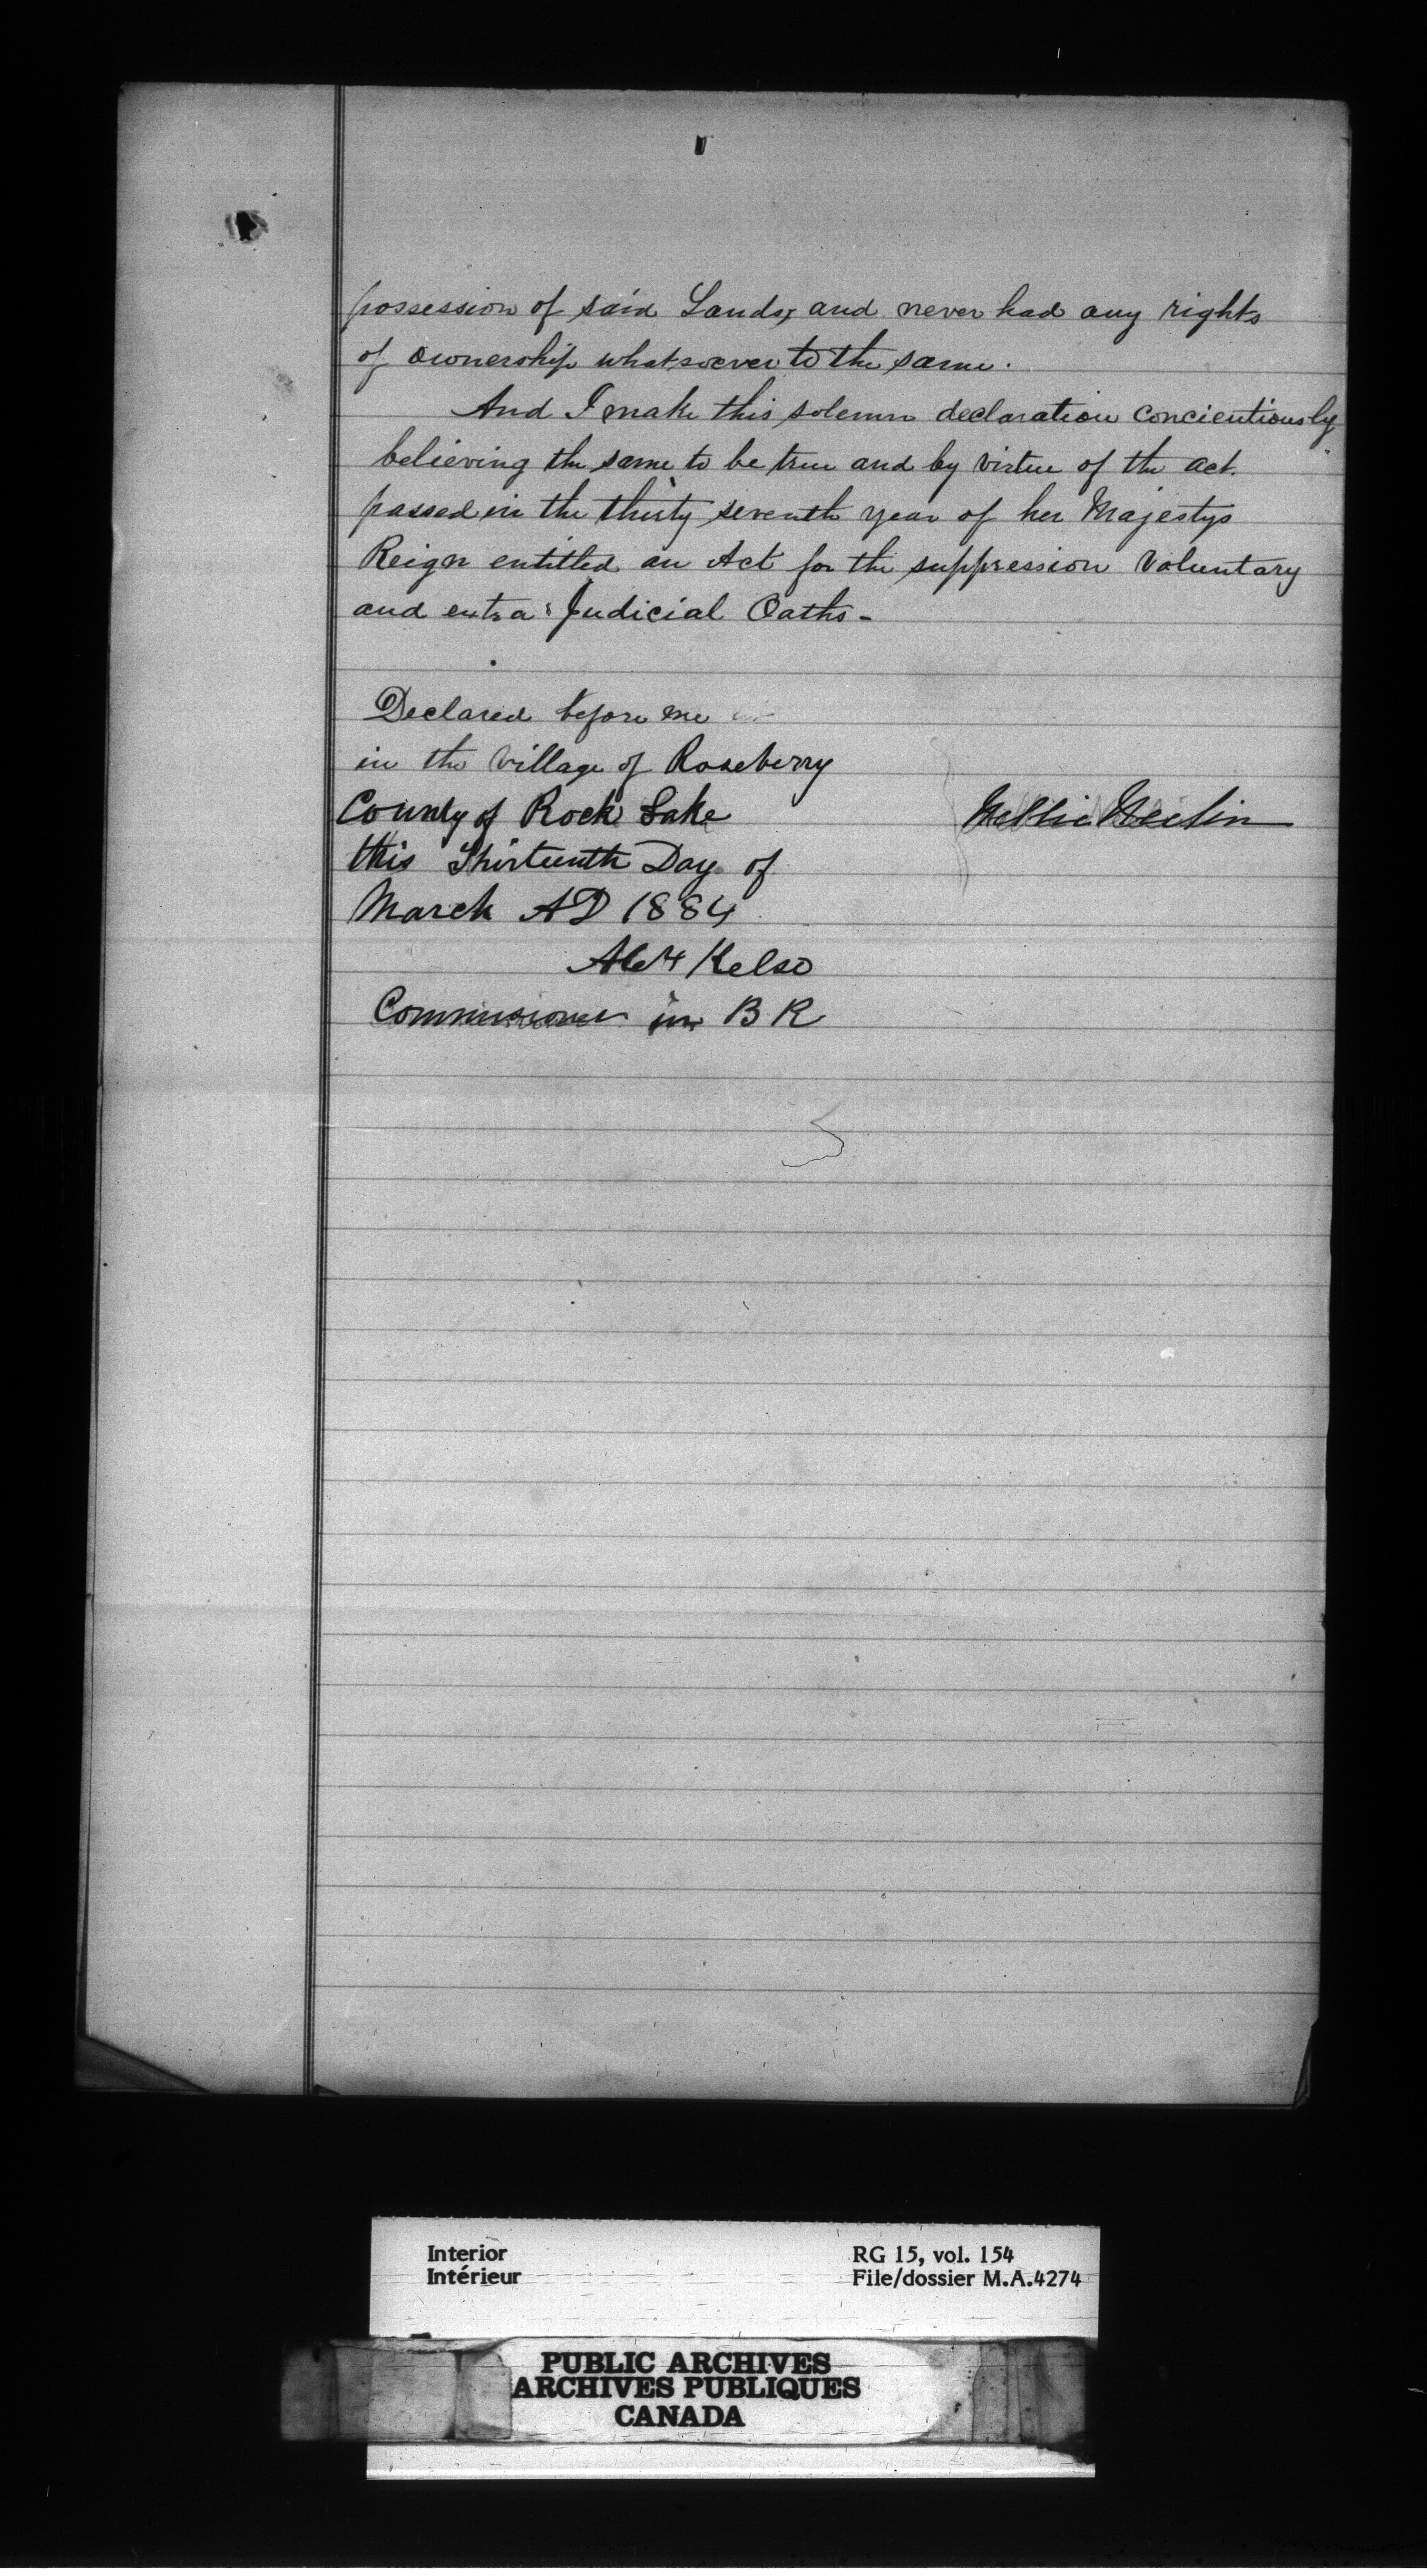 possession of said Lands, and never had any rights
of ownership whatsoever to the same.
And I make this solemn declaration concientiously
believing the same to be true and by virtue of the act.
passed in the thirty seventh year of her Majestys
Reign entitled an Act for the suppression Voluntary
and extra Judicial Oaths-
Declared before me
in the village of Roseberry
County of Rock Lake
this Thirteenth Day of
March AD 1884
Nellie
Alex Kelso
Commissioner in B R
Interior
Intérieur
RG 15, vol. 154
File/dossier M.A.4274
PUBLIC ARCHIVES
ARCHIVES PUBLIQUES
CANADA